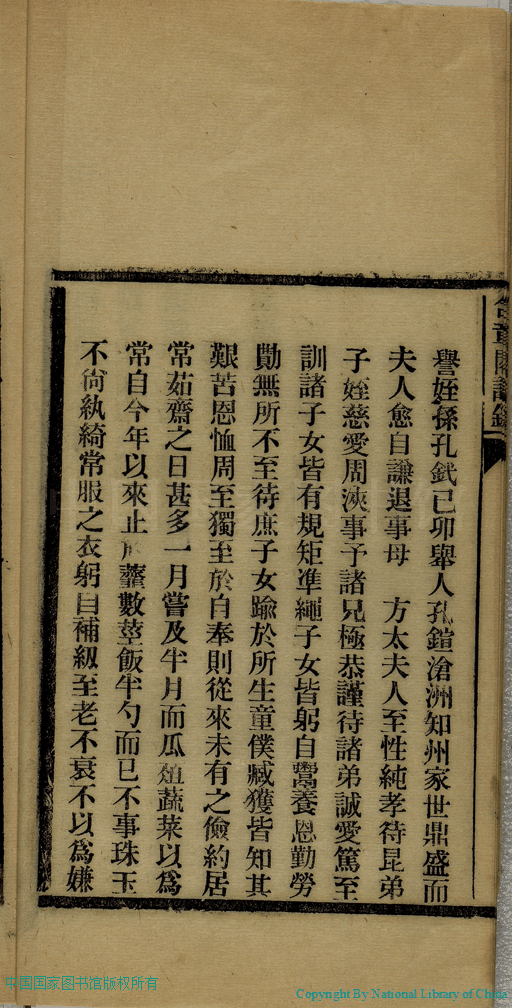 譽姪孫孔鉽己卯舉人孔鎧滄洲知州家世鼎盛而
夫人愈自謙退事母　方太夫人至性純孝待昆弟
子姪慈愛周浹事予諸兄極恭謹待諸弟誠愛篤至
訓諸子女皆有規矩準繩子女皆躬自鬻養恩勤勞
勩無所不至待庶子女踰於所生童僕臧獲皆知其
艱苦恩恤周至獨至於自奉則從來未有之儉約居
常茹齋之日甚多一月嘗及半月而瓜葅蔬菜以爲
常自今年以來止於虀數莖飯半勺而已不事珠玉
不尙紈綺常服之衣躬自補級至老不衰不以爲嫌
中国国家图书馆版权所有
Copyright By National Library of China